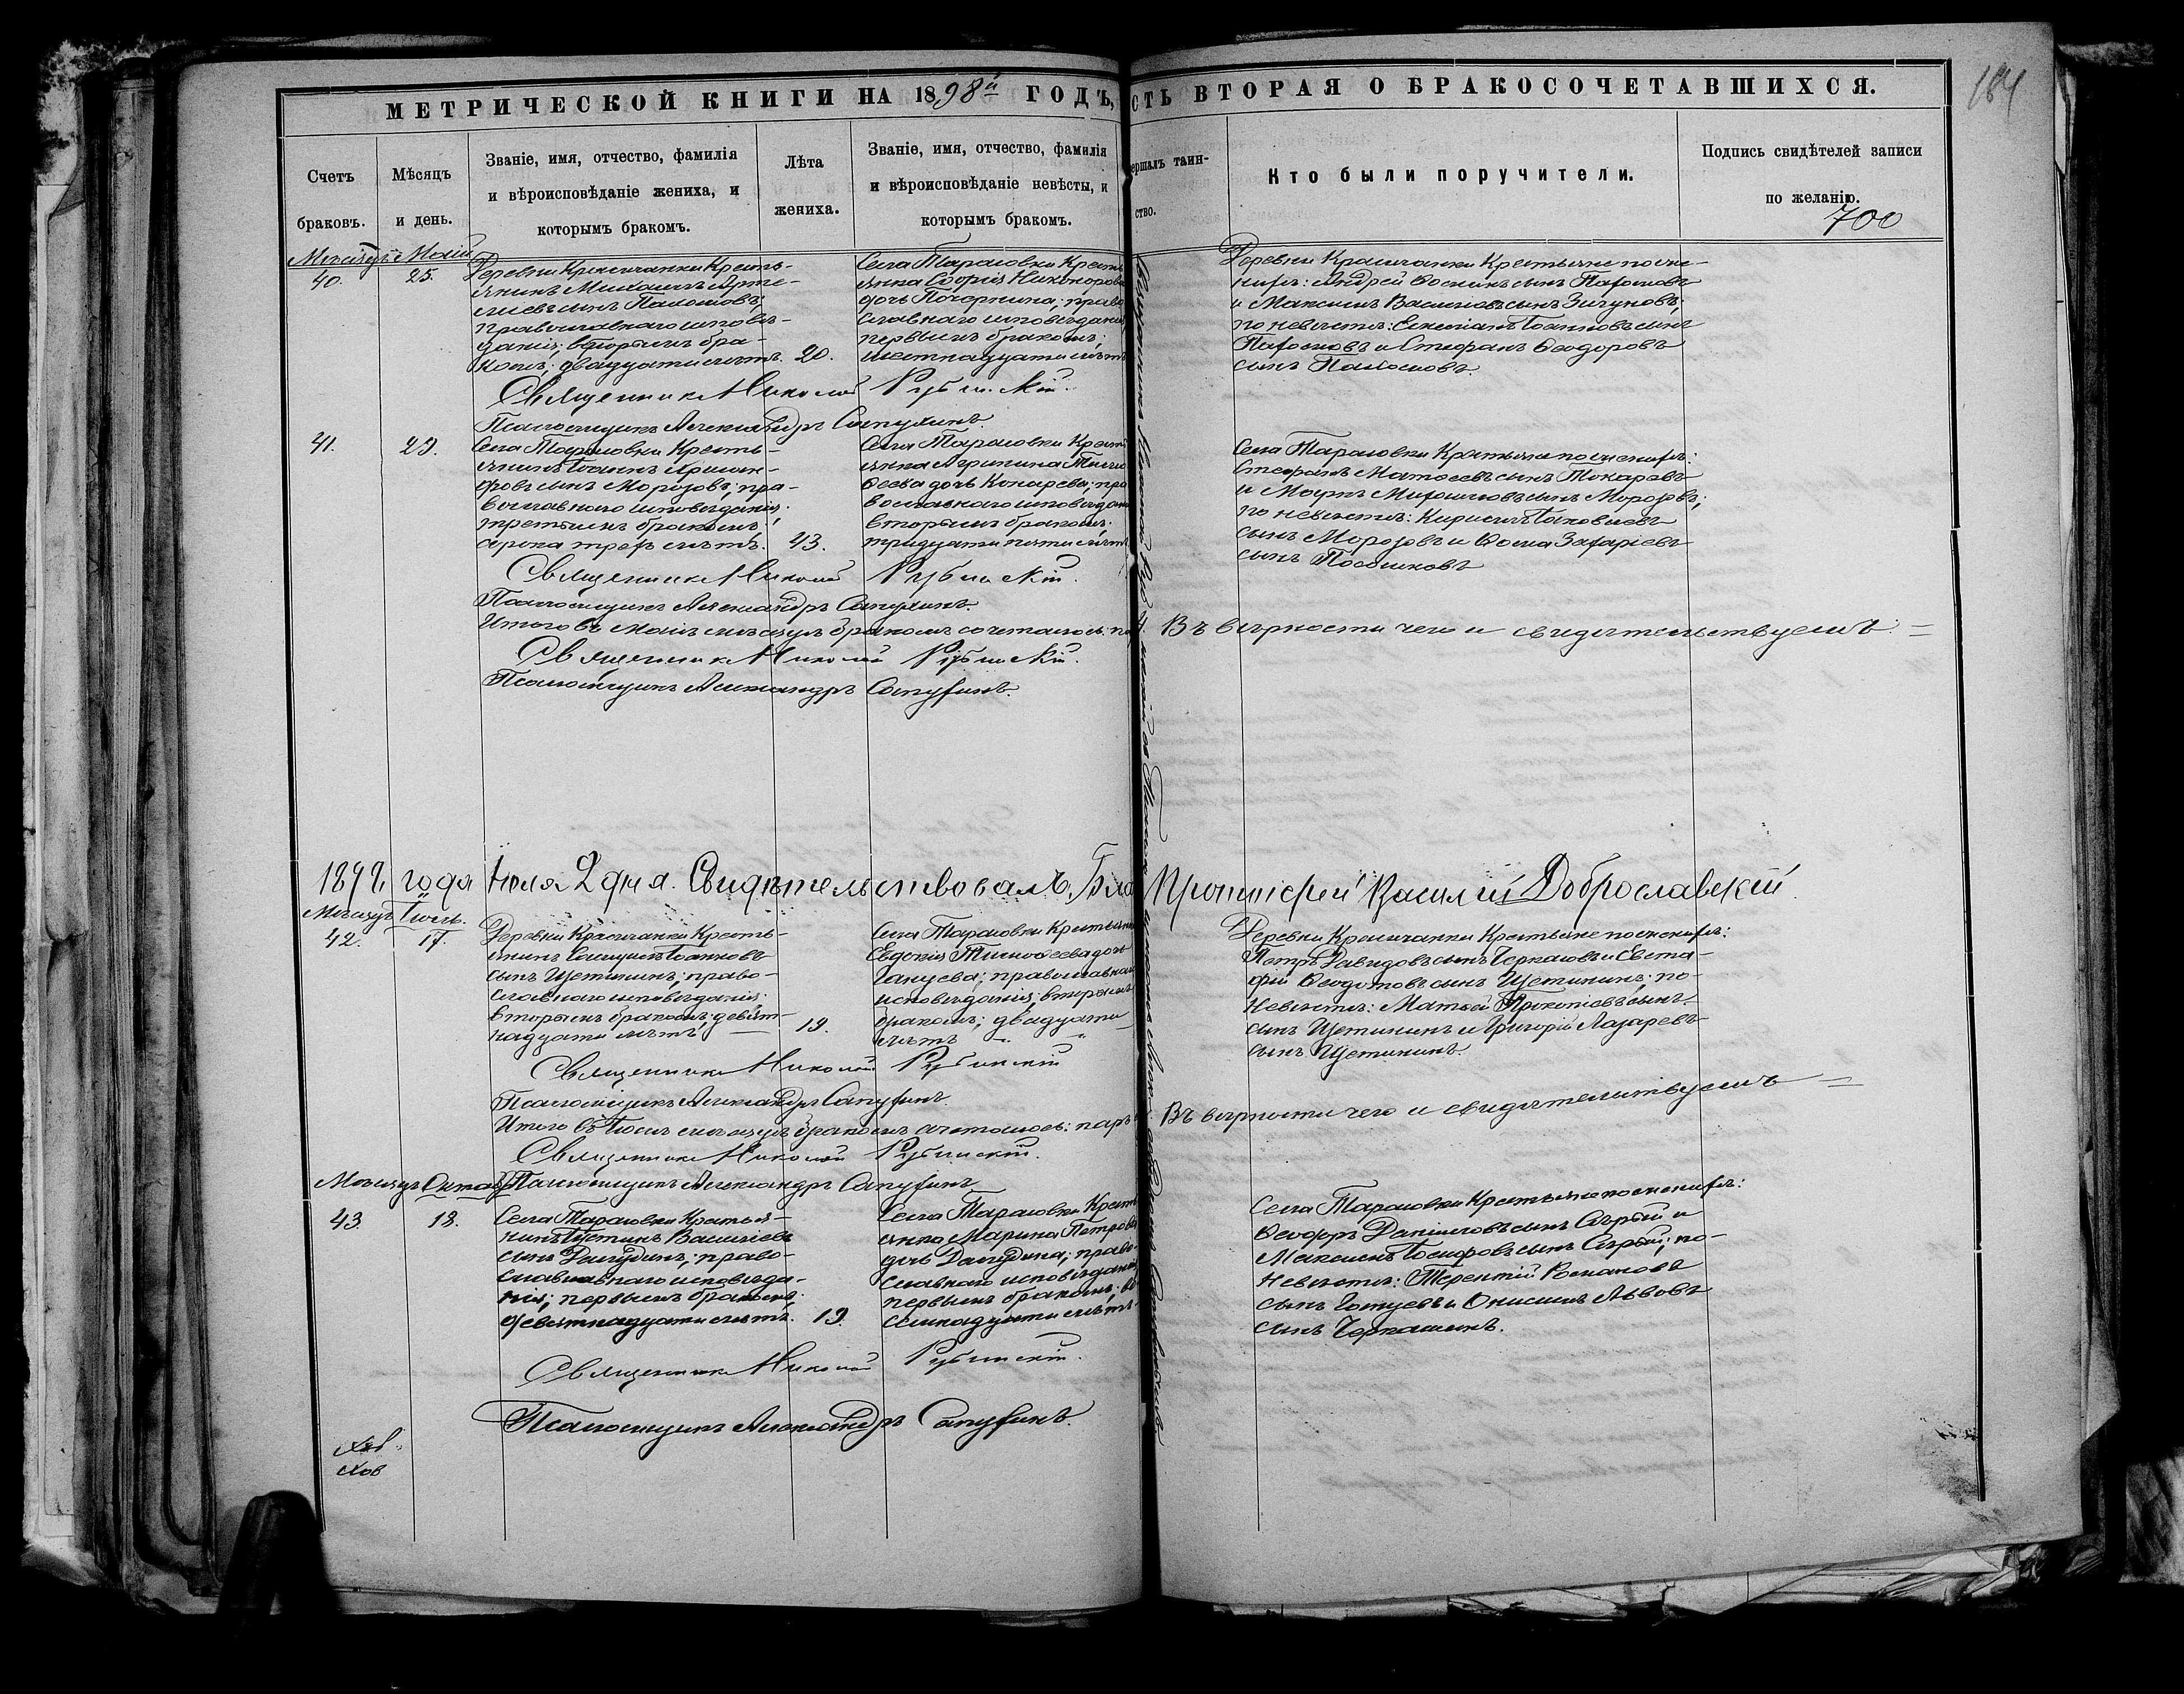 184
МЕТРИЧЕСКОЙ КНИГИ НА 1898й ГОДЪ,
СТЬ ВТОРАЯ О БРАКОСОЧЕТАВШИХСЯ.
Счетъ
браковъ.
Мѣсяцъ
и день.
Званіе, имя, отчество, фамилія
и вѣроисповѣданіе жениха, и
которымъ бракомъ.
Лѣта
жениха.
Званіе, имя, отчество, фамилія
и вѣроисповѣданіе невѣсты, и
которымъ бракомъ.
ершалъ таин-
ство.
Кто были поручители.
Подпись свидѣтелей записи
по желанію.
700
Мѣсяцъ Маій
40.
25.
Деревни Красичанки Кресть-
янинъ Михаилъ Арте-
міевъ сынъ
православнаго исповѣ-
данія; вторымъ бра-
комъ; двадцати лѣтъ.
20.
Села Тарасовки Кресть
янка Софія Никонорова
дочь Почернина; право
славнаго исповѣданія
первымъ бракомъ;
шестнадцати лѣтъ
Деревни Красичанки Крестьяне по же-
нихѣ: Андрей сынъ
и Максимъ Васильевъ сынъ Зигуновъ;
по невѣстѣ: Емеліанъ Іоанновъ сынъ
и Стефанъ Ѳеодоровъ
сынъ
Священникъ Николай Рубинскій.
Псаломщикъ Александръ Сапухинъ.
41.
29.
Села Тарасовки Кресть-
янинъ Іоаннъ
сынъ Морозовъ; пра-
вославнаго исповѣданія;
третьимъ бракомъ;
сорока трехъ лѣтъ.
43.
Села Тарасовки Кресть
янка Агрипина Тимо
ѳеева дочь Конарева; пра
вославнаго исповѣдан
вторымъ бракомъ;
тридцати пяти лѣтъ
Села Тарасовки Крестьяне по женихѣ:
Стефанъ Матѳеевъ сынъ Токаревъ
и Маркъ Михаиловъ сынъ Морозовъ;
по невѣстѣ: Кириллъ Іаковлевъ
сынъ Морозовъ и Ѳома Захаріевъ
сынъ
Священникъ Николай Рубинскій.
Псаломщикъ Александръ Сапухинъ.
Итого въ Маіѣ мѣсяцѣ бракомъ сочеталось: па
Въ вѣрности чего и свидѣтельствуемъ: =
Священникъ Николай Рубинскій.
Псаломщикъ Александръ Сапухинъ.
1898 года Іюля 2 дня. Свидѣтельствовалъ, Бла
Протоіерей Василій Доброславскій.
Мѣсяцъ Іюль.
42.
17.
Деревни Красичанки Кресть-
янинъ Іоанновъ
сынъ Щетининъ; право-
славнаго исповѣданія;
вторымъ бракомъ; девят-
надцати лѣтъ
19.
Села Тарасовки Крестьянка
Евдокія Тимоѳеева дочь
православнаго
исповѣданія; вторымъ
бракомъ; двадцати
лѣтъ
Деревни Красичанки Крестьяне по женихѣ:
Петръ Давидовъ сынъ и Евста-
фій Ѳеодотовъ сынъ Щетининъ; по-
невѣстѣ: Матѳей Прокопіевъ сынъ
сынъ Щетининъ и Григорій Лазаревъ
сынъ Щетининъ.
Священникъ Николай Рубинскій
Псаломщикъ Александръ Сапухинъ.
Итого въ Іюлѣ мѣсяцѣ бракомъ сочеталось: паръ
Въ вѣрности чего и свидѣтельствуемъ =
Священникъ Николай Рубинскій.
Мѣсяцъ Октяб Псаломщикъ Александръ Сапухинъ
43.
18.
Села Тарасовки Крестья-
нинъ Іустинъ Васильевъ
сынъ право-
славнаго исповѣда-
нія; первымъ бракомъ;
девятнадцати лѣтъ.
19.
Села Тарасовки Кресть
янка Марина Петрова
дочь право-
славнаго исповѣданія
первымъ бракомъ; во
семнадцати лѣтъ
Села Тарасовки Крестьяне по женихѣ:
Ѳеодоръ Даніиловъ сынъ Сѣрый и
Максимъ Іосифовъ сынъ Сѣрый; по-
невѣстѣ: Терентій Романовъ
сынъ и Онисимъ Львовъ
сынъ Черкашинъ.
Священникъ Николай Рубинскій.
Псаломщикъ Александръ Сапухинъ.